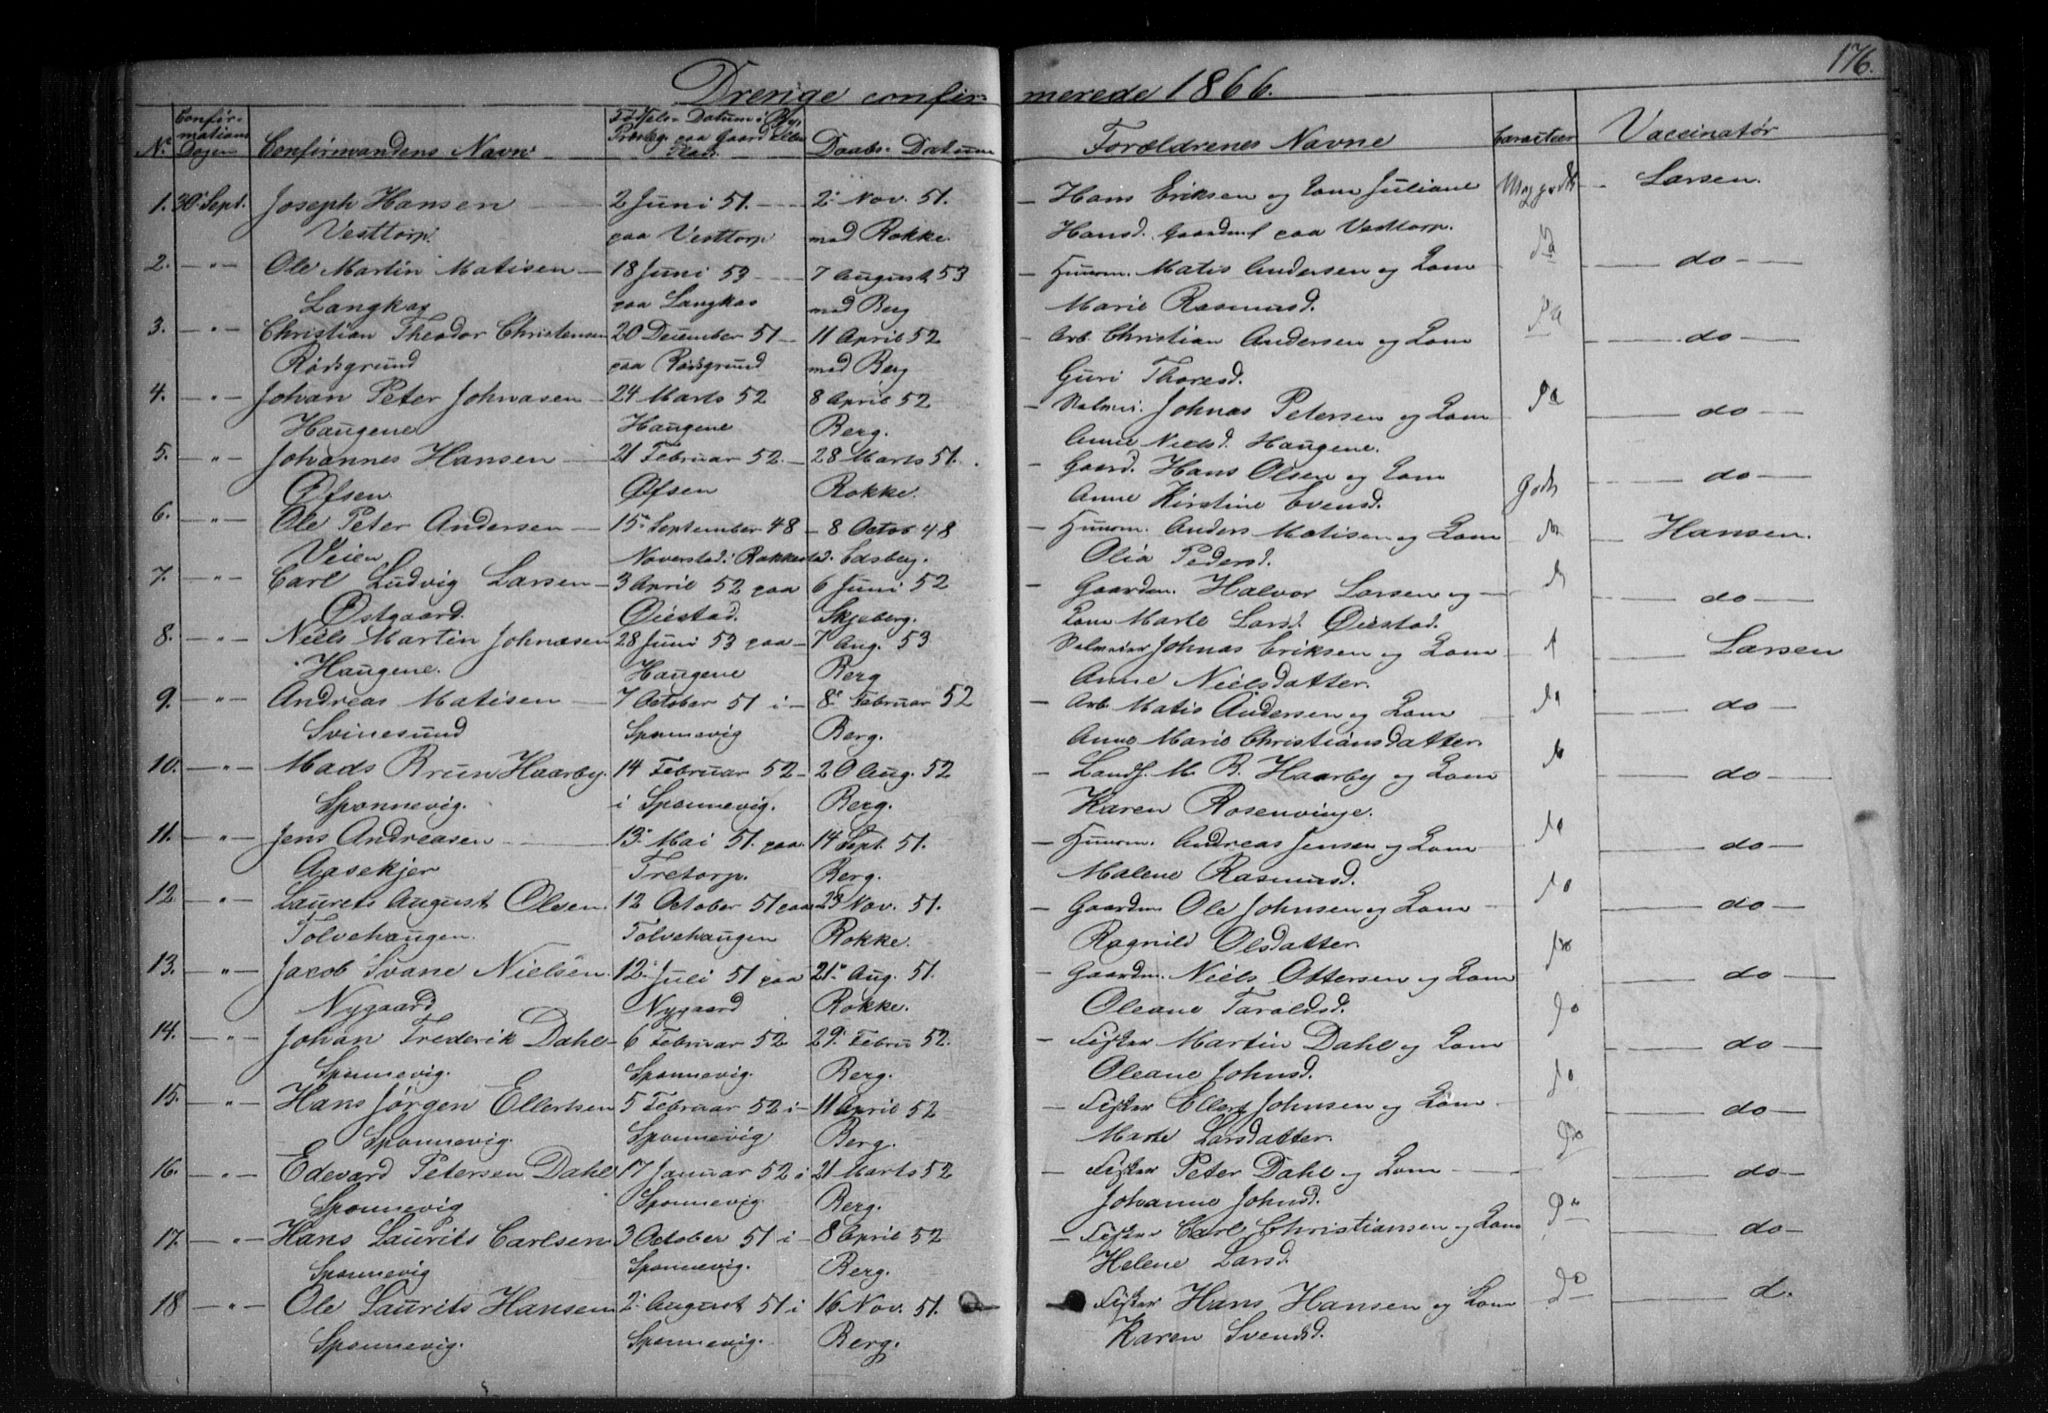 176.
Drenge confirmerede 1866.
No Confirmations Dagen Confirmandens Navn Fødsels-Datum i Byg. Præsteg. paa Gaard eller Plads. Daabs-Datum Forældrenes Navne Caracteer Vaccinatør
1. 30 Sept. Joseph Hansen 2 Juni 51. 2. Nov. 51. Hans Eriksen og Kone Juliane Meg godt Larsen.
Vesttorp. paa Vesttorp med Rokke. Hansd. Gaardm. paa Vesttorp.
2. " Ole Martin Matisen 18 Juni 53 7 August 53 Huusm. Matis Andersen og Kone do do
Langkas paa Langkas med Berg Marie Rasmusd.
3. " Christian Theodor Christensen 20 December 51 11 April 52 Arb. Christian Andersen og Kone do do
Rødsgrund paa Rødsgrund med Berg Guri Thoresd.
4. " Johan Peter Johnasen 24 Marts 52 8 April 52 Johnas Petersen og Kone do do
Haugene Haugene Berg. Anne Nielsd. Haugene.
5. " Johannes Hansen 21 Februar 52. 28 Marts 51. Gaard. Hans Olsen og Kone Godt do
Øfsen Øfsen Rokke. Anne Kirstine Evensd.
6. " Ole Peter Andersen 15. September 48 8 Octob 48 Huusm. Anders Matisen og Kone do Hansen.
Veien Noverstad. i Rakkestad. Eidsberg. Olia Pedersd.
7. " Carl Ludvig Larsen 3 April 52 paa 6 Juni 52 Gaardm. Halvor Larsen og do
Østgaard. Øiestad. Skjeberg. Kone Marte Larsd. Øiestad.
8. " Niels Martin Johnasen 28 Juni 53 paa 7 Aug. 53 Johnas Eriksen og Kone Larsen
Haugene. Haugene Berg Anne Nielsdatter.
9. " Andreas Matisen 7 October 51 i 8. Februar 52 Arb. Matis Andersen og Kone do do
Svinesund Sponnevig Berg. Anne Marie Christiansdatter.
10. " Mads Brun Haarby. 14 Februar 52 20 Aug. 52 Landh. M. B. Haarby og Kone do do
Sponnevig. i Sponnevig. Berg. Karen Rosenvinge.
11. " Jens Andreasen 13. Mai 51. paa 14 Sept. 51. Huusm. Andreas Jensen og Kone do do
Aasekjer Tretorp. Berg. Malene Rasmusd.
12 " Laurets August Olsen. 12 October 51 paa 23 Nov. 51. Gaardm Ole Johnsen og Kone do do
Tolvehaugen. Tolvehaugen Rokke. Ragnild Olsdatter.
13. " Jacob Svane Nielsen. 12. Juli 51 paa 21. Aug. 51. Gaardm. Niels Ottersen og Kone do do
Nygaard Nygaard Rokke. Oleane Taraldsd.
14. " Johan Frederik Dahl 6 Februar 52 29. Febru 52. Fisker Martin Dahl og Kone do do
Sponnevig. Sponnevig. Berg. Oleane Johnsd.
15. " Hans Jørgen Ellertsen 5 Februar 52 i 11 April 52 Fisker Ellert Johnsen og Kone do do
Sponnevig. Sponnevig Berg. Marte Larsdatter.
16. " Edevard Petersen Dahl 17 Januar 52 i 21 Marts 52 Fisker Peter Dahl og Kone do do
Sponnevig Sponnevig. Berg. Johanne Johnsd.
17. " Hans Laurits Carlsen 3 October 51 i 8 April 52 Fisker Carl Christiansen og Kone do do
Sponnevig Sponnevig. Berg. Helene Larsd.
18 " Ole Laurits Hansen 2. August 51 i 16 Nov. 51. Fisker Hans Hansen og Kone do d.
Sponnevig. Sponnevig. Berg. Karen Svendsd.